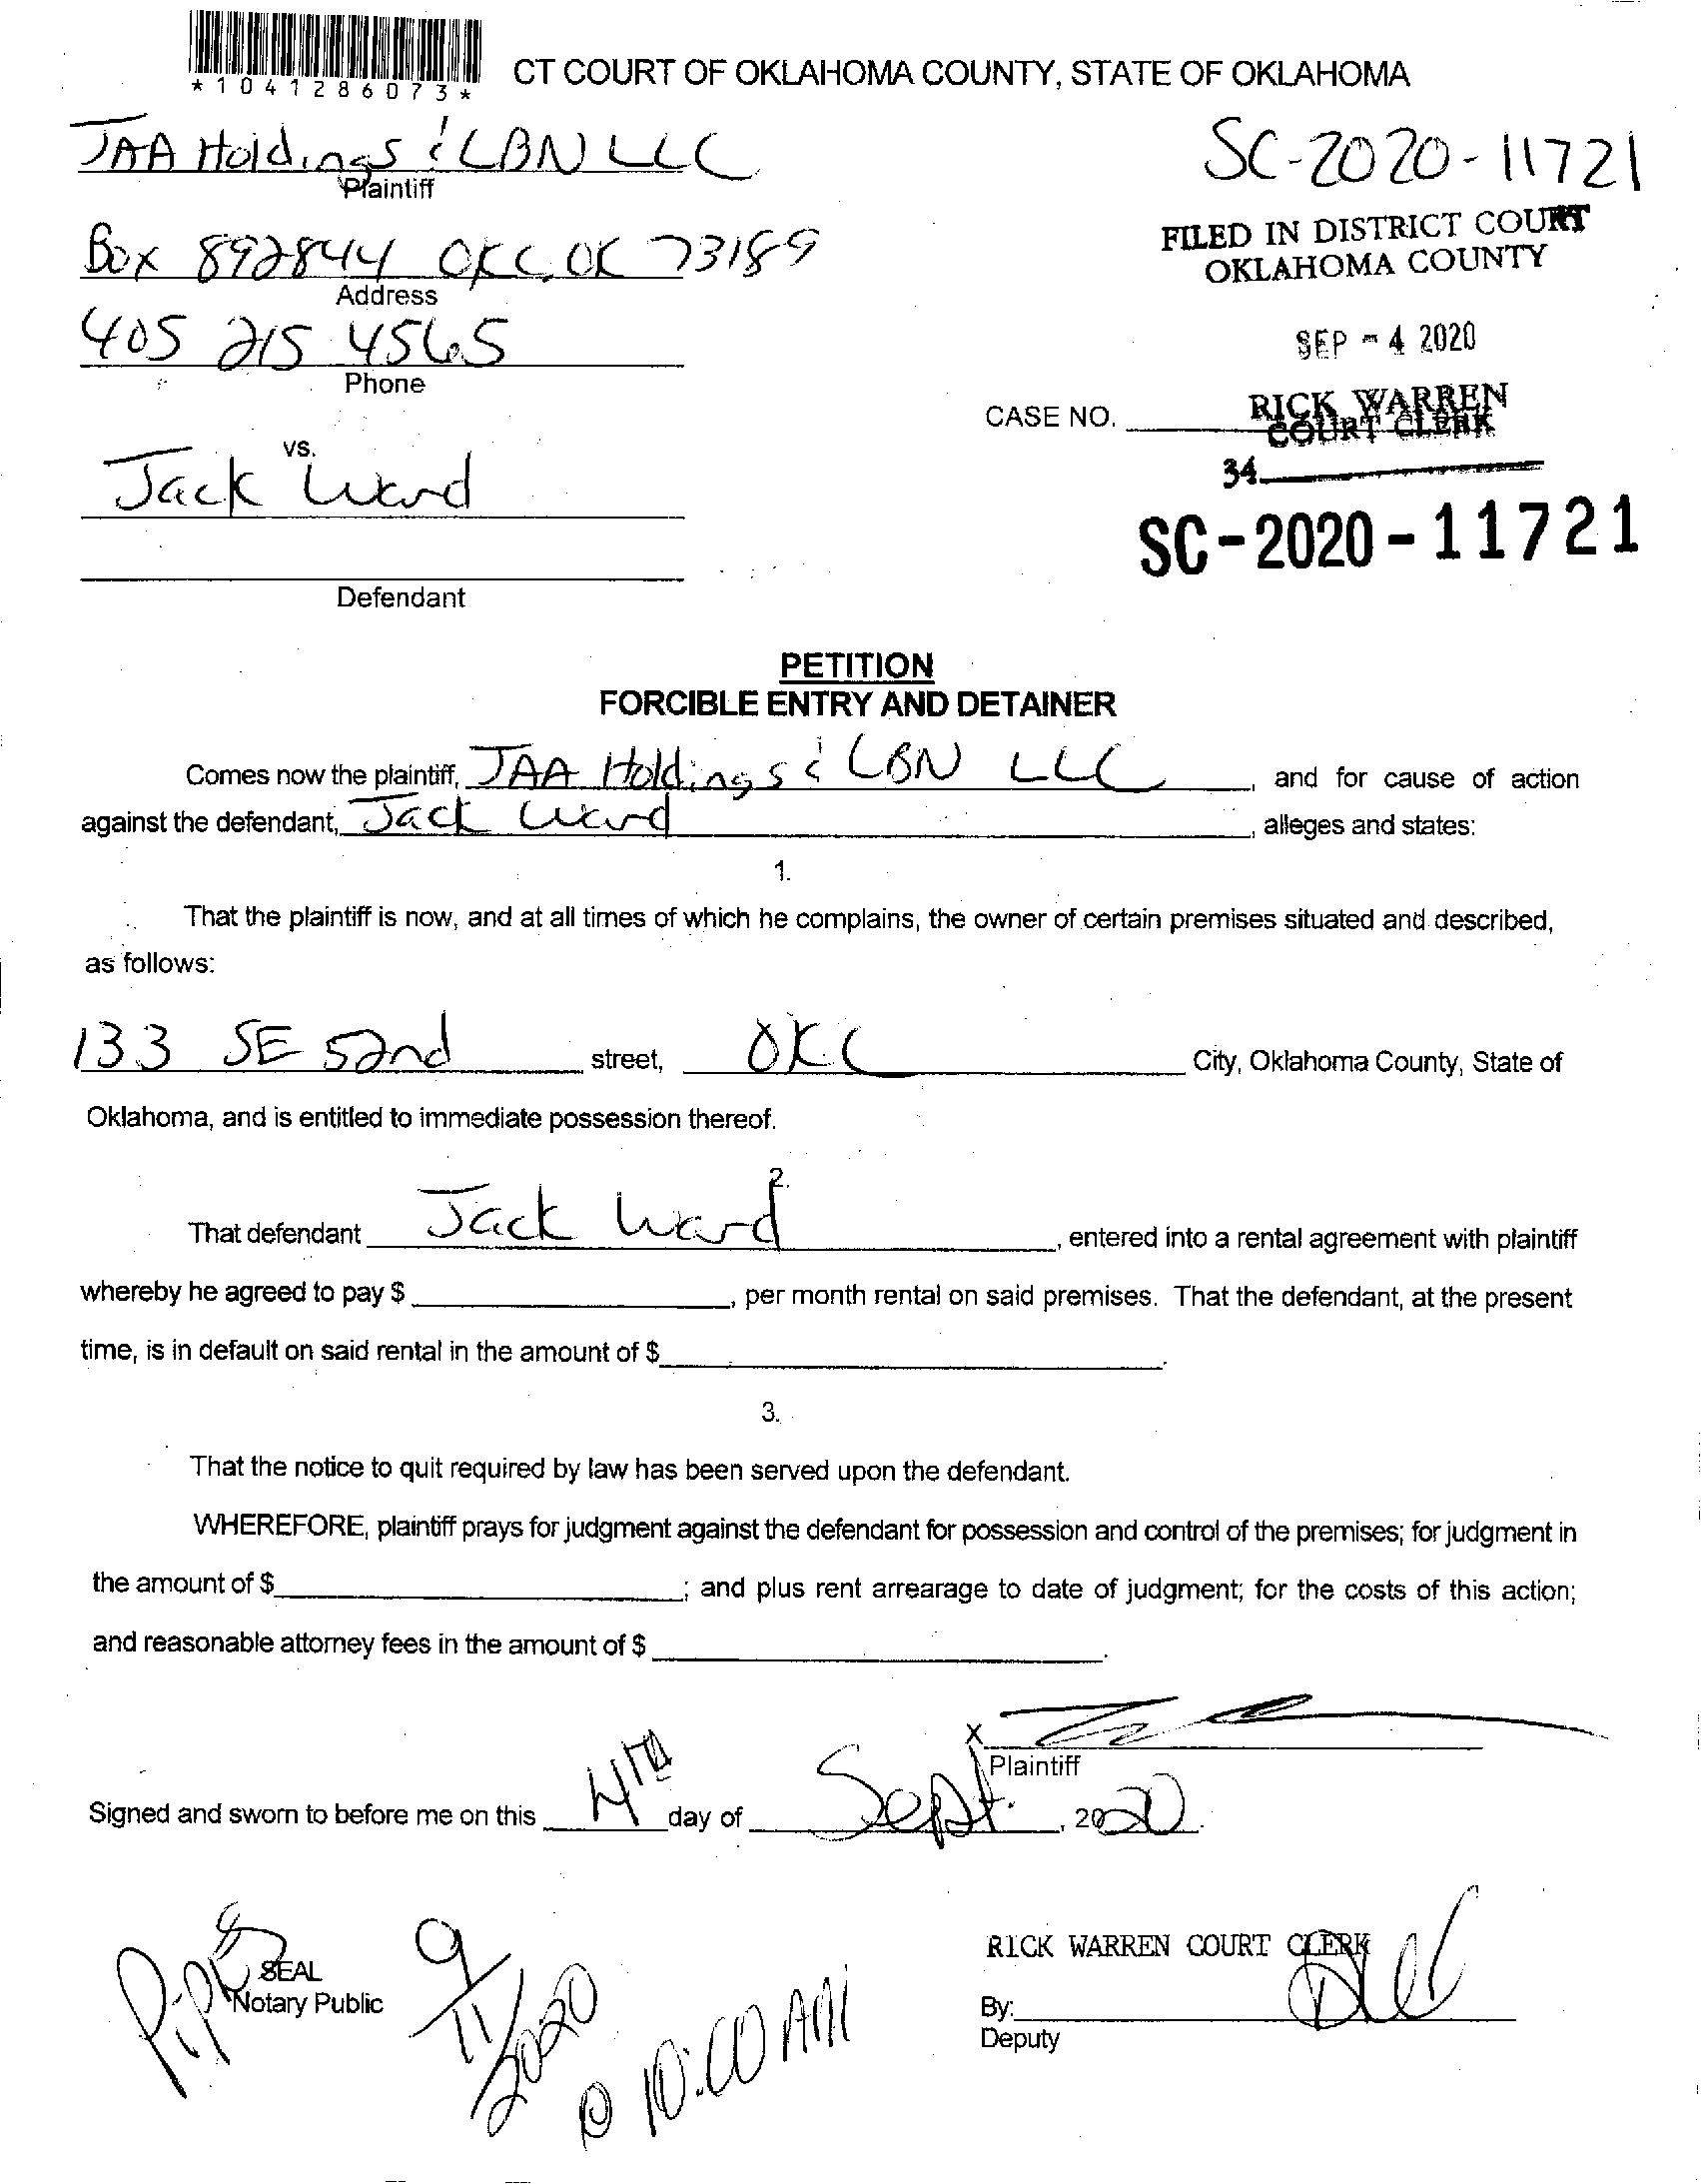 *1041286073*
CT COURT OF OKLAHOMA COUNTY, STATE OF OKLAHOMA
JAA Holdings & LBN LLC
Plaintiff
SC-2020-11721
FILED IN DISTRICT COURT
OKLAHOMA COUNTY
Box 892844 OKC, OK 73189
Address
405 215 4565
Phone
SEP - 4 2020
RICK WARREN
COURT CLERK
CASE NO.
34
vs.
Jack Ward
SC-2020-11721
Defendant
PETITION
FORCIBLE ENTRY AND DETAINER
Comes now the plaintiff, JAA Holdings & LBN LLC, and for cause of action
against the defendant, Jack Ward, alleges and states:
1.
That the plaintiff is now, and at all times of which he complains, the owner of certain premises situated and described,
as follows:
133 SE 52nd street, OKC City, Oklahoma County, State of
Oklahoma, and is entitled to immediate possession thereof.
2.
That defendant Jack Ward, entered into a rental agreement with plaintiff
whereby he agreed to pay $ , per month rental on said premises. That the defendant, at the present
time, is in default on said rental in the amount of $ .
3.
That the notice to quit required by law has been served upon the defendant.
WHEREFORE, plaintiff prays for judgment against the defendant for possession and control of the premises; for judgment in
the amount of $ ; and plus rent arrearage to date of judgment; for the costs of this action;
and reasonable attorney fees in the amount of $ .
X
Plaintiff
Signed and sworn to before me on this 4th day of Sept., 2020.
SEAL
Notary Public
9/11/2020
@ 10:00 AM
RICK WARREN COURT CLERK
By:
Deputy